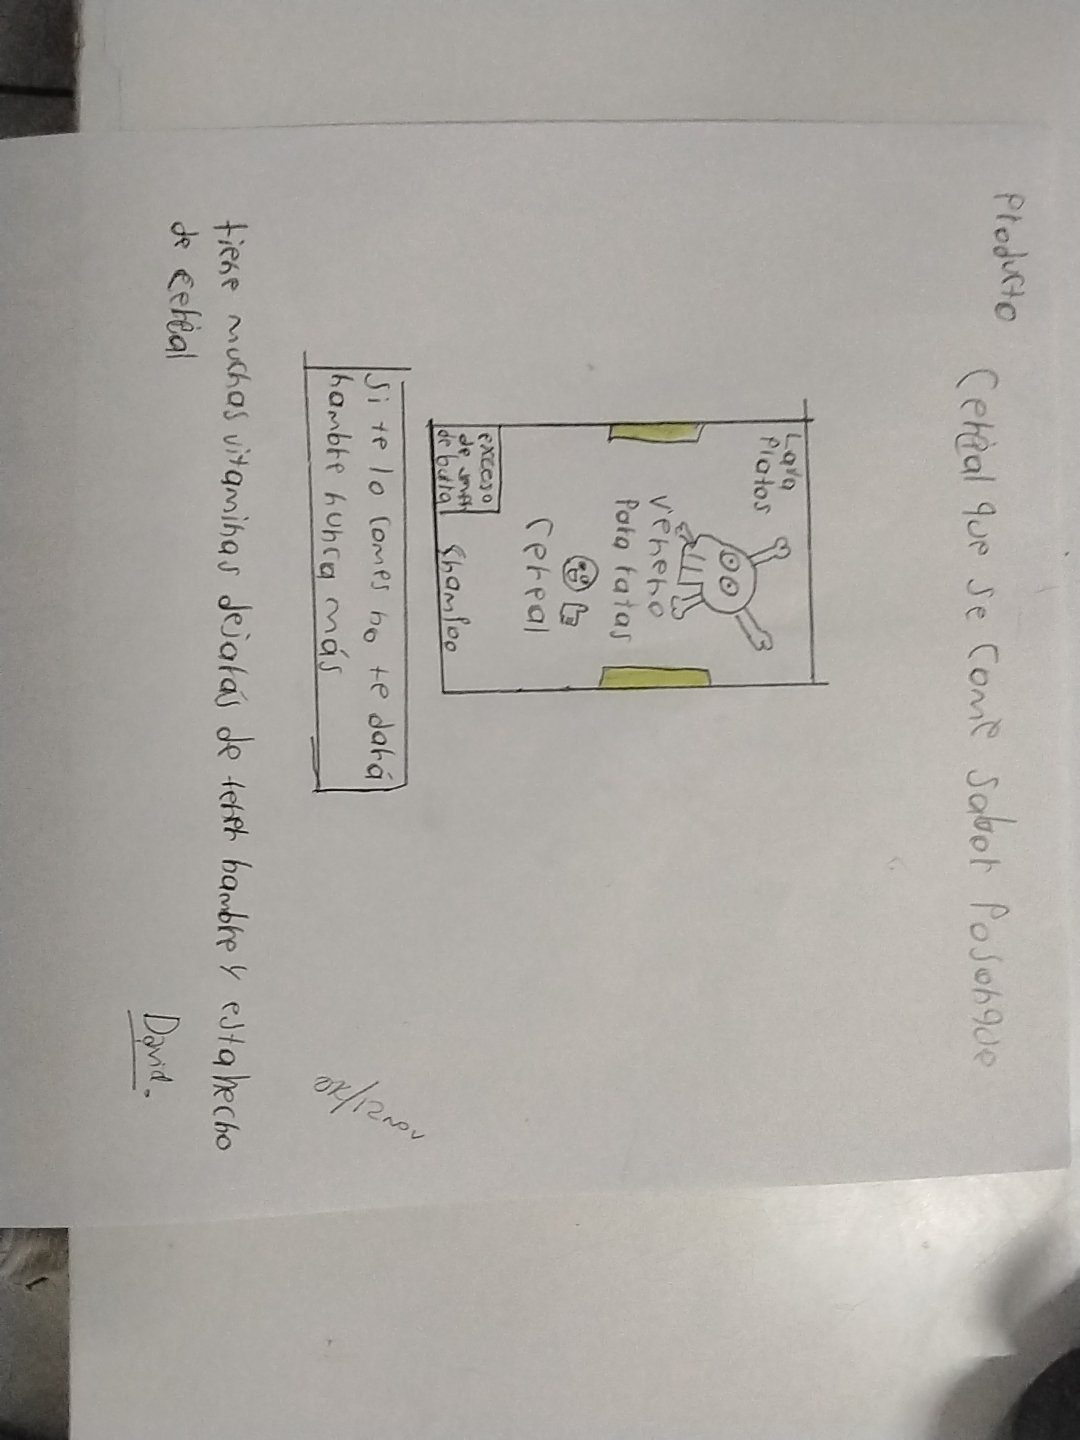 Producto
Cereal que se come sabor Posonque
Lava
Platos
Veneno
Para ratas
Cereal
exceso
de
de burla
Shampoo
Si te lo comes no te dará
hambre nunca más
tiene muchas vitaminas dejarás de tener hambre y esta hecho
de cereal
David.